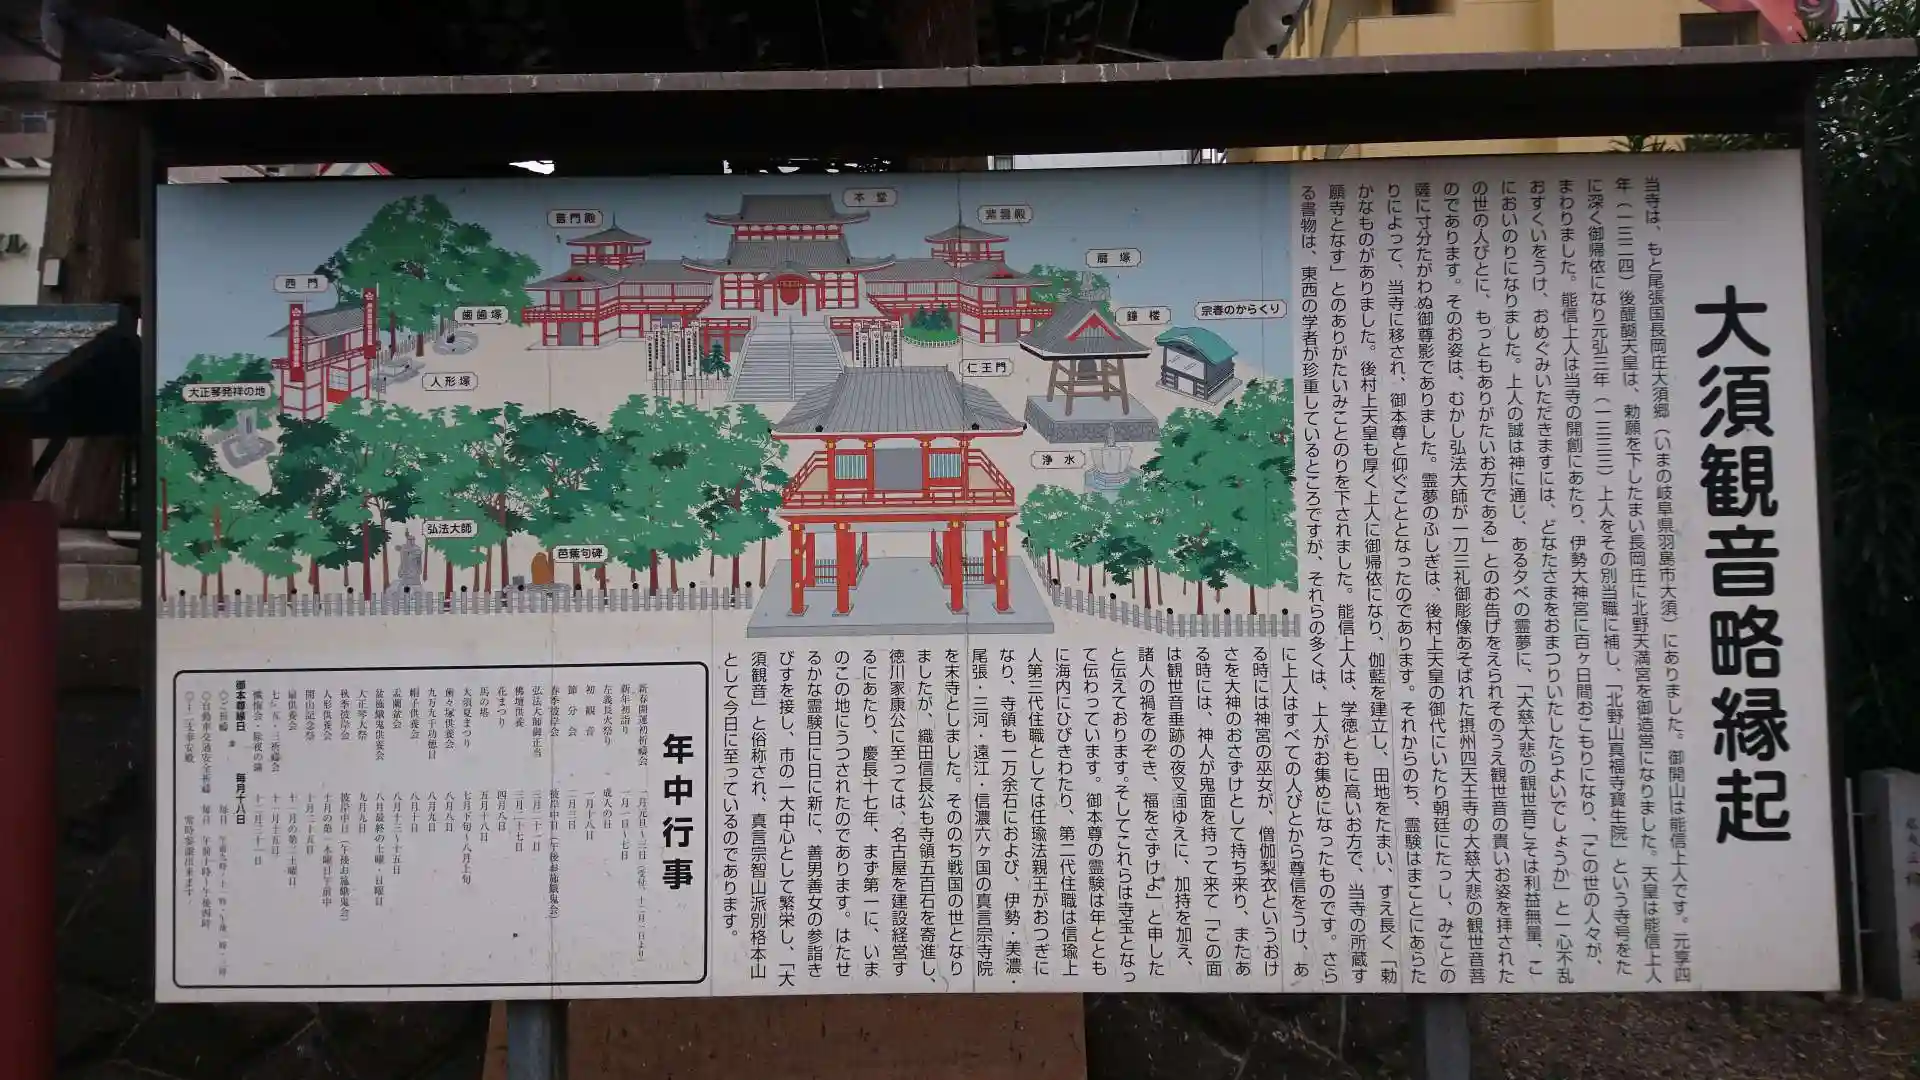 大須観音略縁起
当寺は、もと尾張国長岡庄大須郷（いまの岐阜県羽島市大須）にありました。御開山は能信上人です。元亨四
年（一三二四）後醍醐天皇は、勅願を下したまい長岡庄に北野天満宮を御造営になりました。天皇は能信上人
に深く御帰依になり元弘三年（一三三三）上人をその別当職に補し、「北野山真福寺寶生院」という寺号をた
まわりました。能信上人は当寺の開創にあたり、伊勢大神宮に百ヶ日間おこもりになり、「この世の人々が、
おすくいをうけ、おめぐみいただきますには、どなたさまをおまつりいたしたらよいでしょうか」と一心不乱
においのりになりました。上人の誠は神に通じ、ある夕べの霊夢に、「大慈大悲の観世音こそは利益無量、こ
の世の人びとに、もっともありがたいお方である」とのお告げをえられそのうえ観世音の貴いお姿を拝された
のであります。そのお姿は、むかし弘法大師が一刀三礼御彫像あそばれた摂州四天王寺の大慈大悲の観世音菩
薩に寸分たがわぬ御尊影でありました。霊夢のふしぎは、後村上天皇の御代にいたり朝廷にたっし、みことの
りによって、当寺に移され、御本尊と仰ぐこととなったのであります。それからのち、霊験はまことにあらた
かなものがありました。後村上天皇も厚く上人に御帰依になり、伽藍を建立し、田地をたまい、すえ長く「勅
願寺となす」とのありがたいみことのりを下されました。能信上人は、学徳ともに高いお方で、当寺の所蔵す
る書物は、東西の学者が珍重しているところですが、それらの多くは、上人がお集めになったものです。さら
に上人はすべての人びとから尊信をうけ、あ
る時には神宮の巫女が、僧伽梨衣というおけ
さを大神のおさずけとして持ち来り、またあ
る時には、神人が鬼面を持って来て「この面
は観世音垂跡の夜叉面ゆえに、加持を加え、
諸人の禍をのぞき、福をさずけよ」と申した
と伝えております。そしてこれらは寺宝となっ
て伝わっています。御本尊の霊験は年ととも
に海内にひびきわたり、第二代住職は信瑜上
人第三代住職としては任瑜法親王がおつぎに
なり、寺領も一万余石におよび、伊勢・美濃・
尾張・三河・遠江・信濃六ヶ国の真言宗寺院
を末寺としました。そののち戦国の世となり
ましたが、織田信長公も寺領五百石を寄進し、
徳川家康公に至っては、名古屋を建設経営す
るにあたり、慶長十七年、まず第一に、いま
のこの地にうつされたのであります。はたせ
るかな霊験日に日に新に、善男善女の参詣き
びすを接し、市の一大中心として繁栄し、「大
須観音」と俗称され、真言宗智山派別格本山
として今日に至っているのであります。
本堂
普門殿
紫雲殿
扇塚
西門
歯歯塚
鐘楼
宗春のからくり
人形塚
仁王門
大正琴発祥の地
浄水
弘法大師
芭蕉句碑
年中行事
新春開運初祈祷会 一月元日〜三日（受付、十二月一日より）
新年初詣り 一月一日〜七日
左義長火祭り 成人の日
初観音 一月十八日
節分会 二月三日
春季彼岸会 彼岸中日（午後お施餓鬼会）
弘法大師御正当 三月二十一日
佛壇供養 三月二十七日
花まつり 四月八日
馬の塔 五月十八日
大須夏まつり 七月下旬〜八月上旬
歯々塚供養会 八月八日
九万九千功徳日 八月九日
帽子供養会 八月十日
盂蘭盆会 八月十三〜十五日
盆施餓鬼供養会 八月最終の土曜・日曜日
大正琴大祭 九月九日
秋季彼岸会 彼岸中日（午後お施餓鬼会）
人形供養会 十月の第一木曜日午前中
開山記念祭 十月二十五日
扇供養会 十一月の第三土曜日
七、五・三祈祷会 十一月十五日
懺悔会・除夜の鐘 十二月三十一日
御本尊縁日 毎月十八日
〇自動車交通安全祈祷 毎日 午前十時〜午後四時